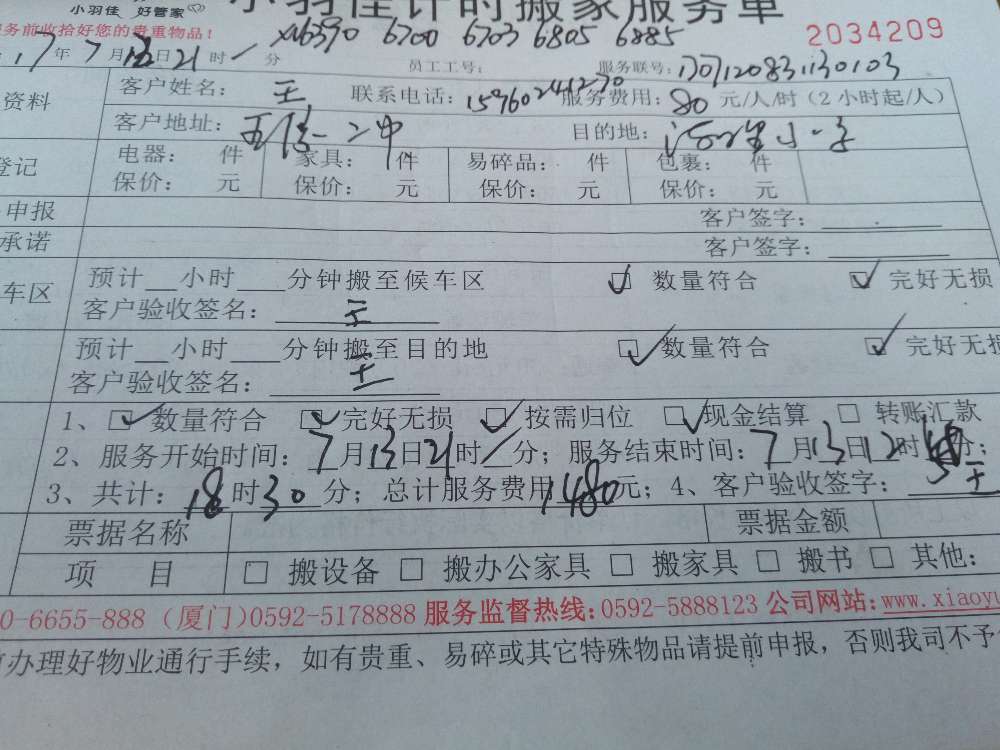 小羽佳 好管家
小羽佳计时搬家服务单
服务前收拾好您的贵重物品！
6700 6703 6805 6885
2034209
17年7月13日21时 分 员工工号： 服务联号：
资料 客户姓名：王 联系电话： 服务费用：80元/人/时（2小时起/人）
客户地址： 二中 目的地： 小学
登记 电器： 件 家具： 件 易碎品： 件 包裹： 件
保价： 元 保价： 元 保价： 元 保价： 元
申报 客户签字：
承诺 客户签字：
车区 预计 小时 分钟搬至候车区 ☑ 数量符合 ☑ 完好无损
客户验收签名：王
预计 小时 分钟搬至目的地 ☑ 数量符合 ☑ 完好无损
客户验收签名：王
1、☑ 数量符合 ☑ 完好无损 ☑ 按需归位 ☑ 现金结算 □ 转账汇款
2、服务开始时间：7月13日21时 分；服务结束时间：7月13日12时 分；
3、共计：18时30分；总计服务费用1480元；4、客户验收签字：王
票据名称 票据金额
项 目 □ 搬设备 □ 搬办公家具 □ 搬家具 □ 搬书 □ 其他：
0-6655-888（厦门）0592-5178888 服务监督热线：0592-5888123 公司网站：www.xiaoyu
办理好物业通行手续，如有贵重、易碎或其它特殊物品请提前申报，否则我司不予